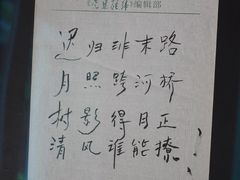 编辑部
迟归非末路
月照跨河桥
树影得月正
清风谁能撩